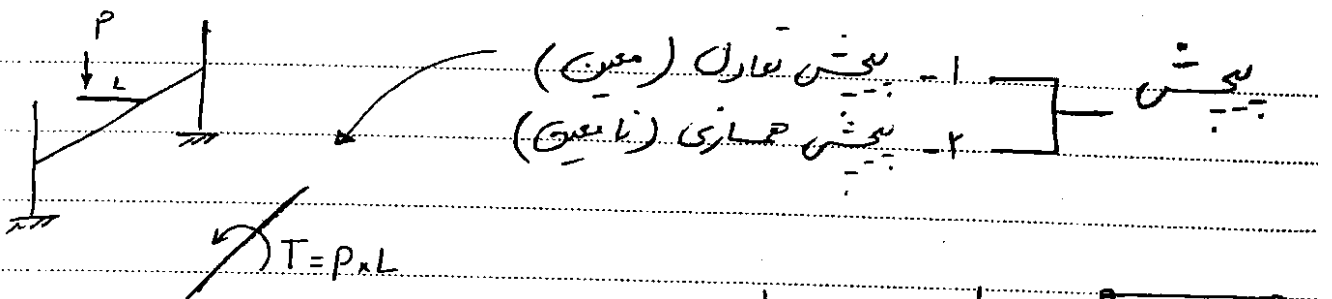 پیچش
۱- پیچش تعادل (معین)
۲- پیچش همسازی (نامعین)
P
L
T=P×L